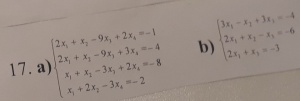 17. a) { 2x₁ + x₂ − 9x₃ + 2x₄ = −1
2x₁ + x₂ − 9x₃ + 3x₄ = −4
x₁ + x₂ − 3x₃ + 2x₄ = −8
x₁ + 2x₂ − 3x₄ = −2
b) { 3x₁ − x₂ + 3x₃ = −4
2x₁ + x₂ − x₃ = −6
2x₁ + x₂ = −3